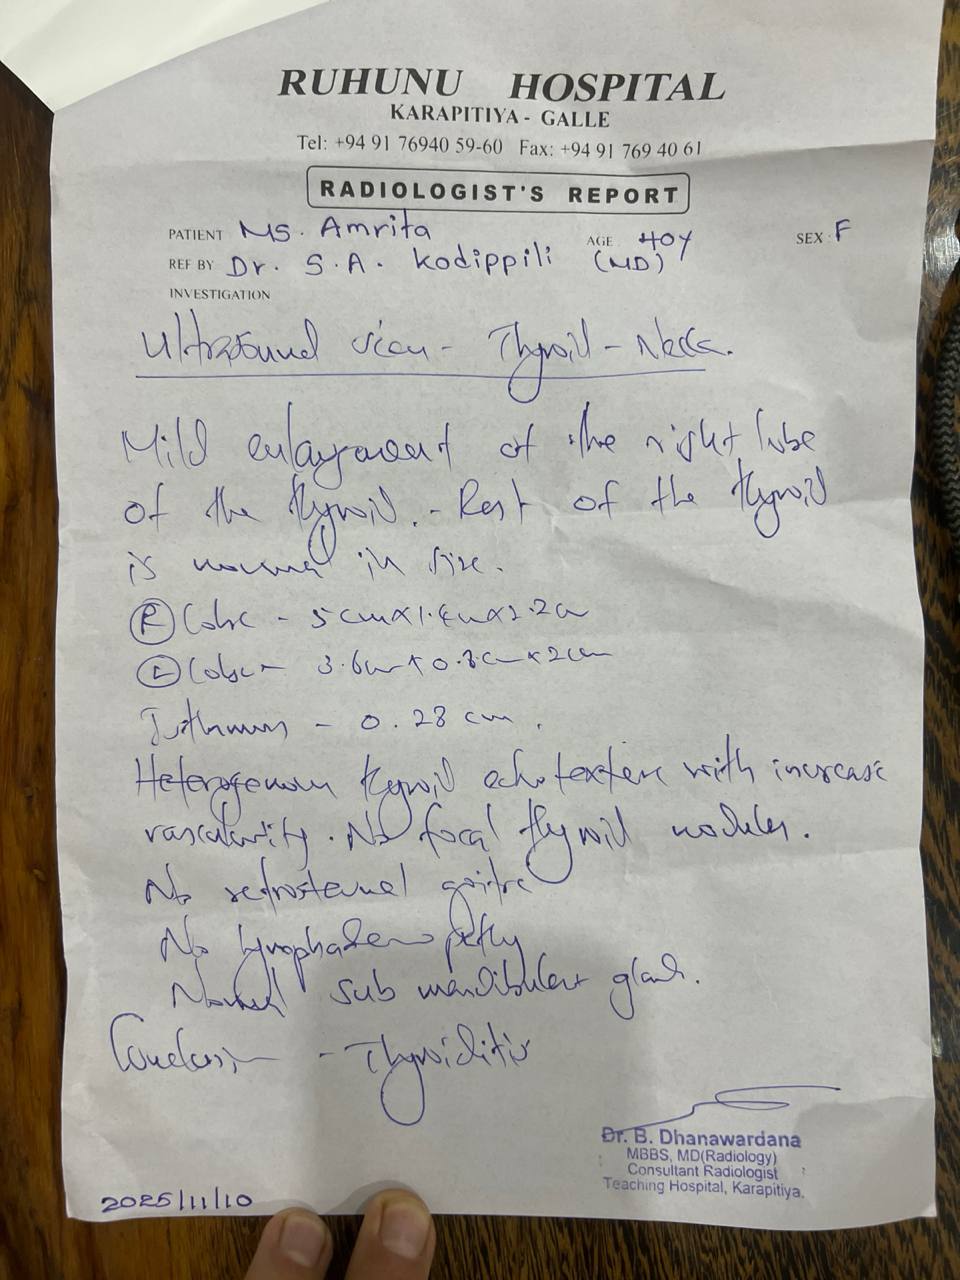 RUHUNU HOSPITAL
KARAPITIYA - GALLE
Tel: +94 91 76940 59-60 Fax: +94 91 769 40 61
RADIOLOGIST'S REPORT
PATIENT Ms. Amrita AGE 40y SEX F
REF BY Dr. S.A. Kodippili (MD)
INVESTIGATION
Ultrasound scan - Thyroid - Neck.
Mild enlargement of the right lobe
of the thyroid. - Rest of the thyroid
is normal in size.
(R) Lobe - 5cm x 1. x 2.2cm
(L) Lobe - 3.6cm x 0.8cm x 2cm
Isthmus - 0.28 cm.
Heterogenous thyroid echotexture with increase
vascularity. No focal thyroid nodules.
No retrosternal goitre
No lymphadenopathy
Normal sub mandibular glands.
Conclusion - Thyroiditis
Dr. B. Dhanawardana
MBBS, MD(Radiology)
Consultant Radiologist
Teaching Hospital, Karapitiya.
2025/11/10